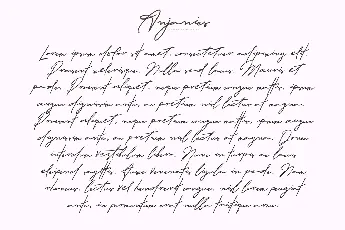 Anjanias
Lorem ipsum dolor sit amet, consectetuer adipiscing elit.
Praesent scelerisque. Nulla sed lacus. Mauris et
pede. Praesent aliquet, neque pretium congue mattis, ipsum
augue dignissim ante, ac pretium nisl lectus at magna.
Praesent aliquet, neque pretium congue mattis, ipsum augue
dignissim ante, ac pretium nisl lectus at magna. Donec
interdum vestibulum libero. Nunc in turpis ac lacus
eleifend sagittis. Fusce venenatis ligula in pede. Nam
lectus vel hendrerit congue, nisl lorem feugiat
ante, in fermentum erat nulla tristique arcu.